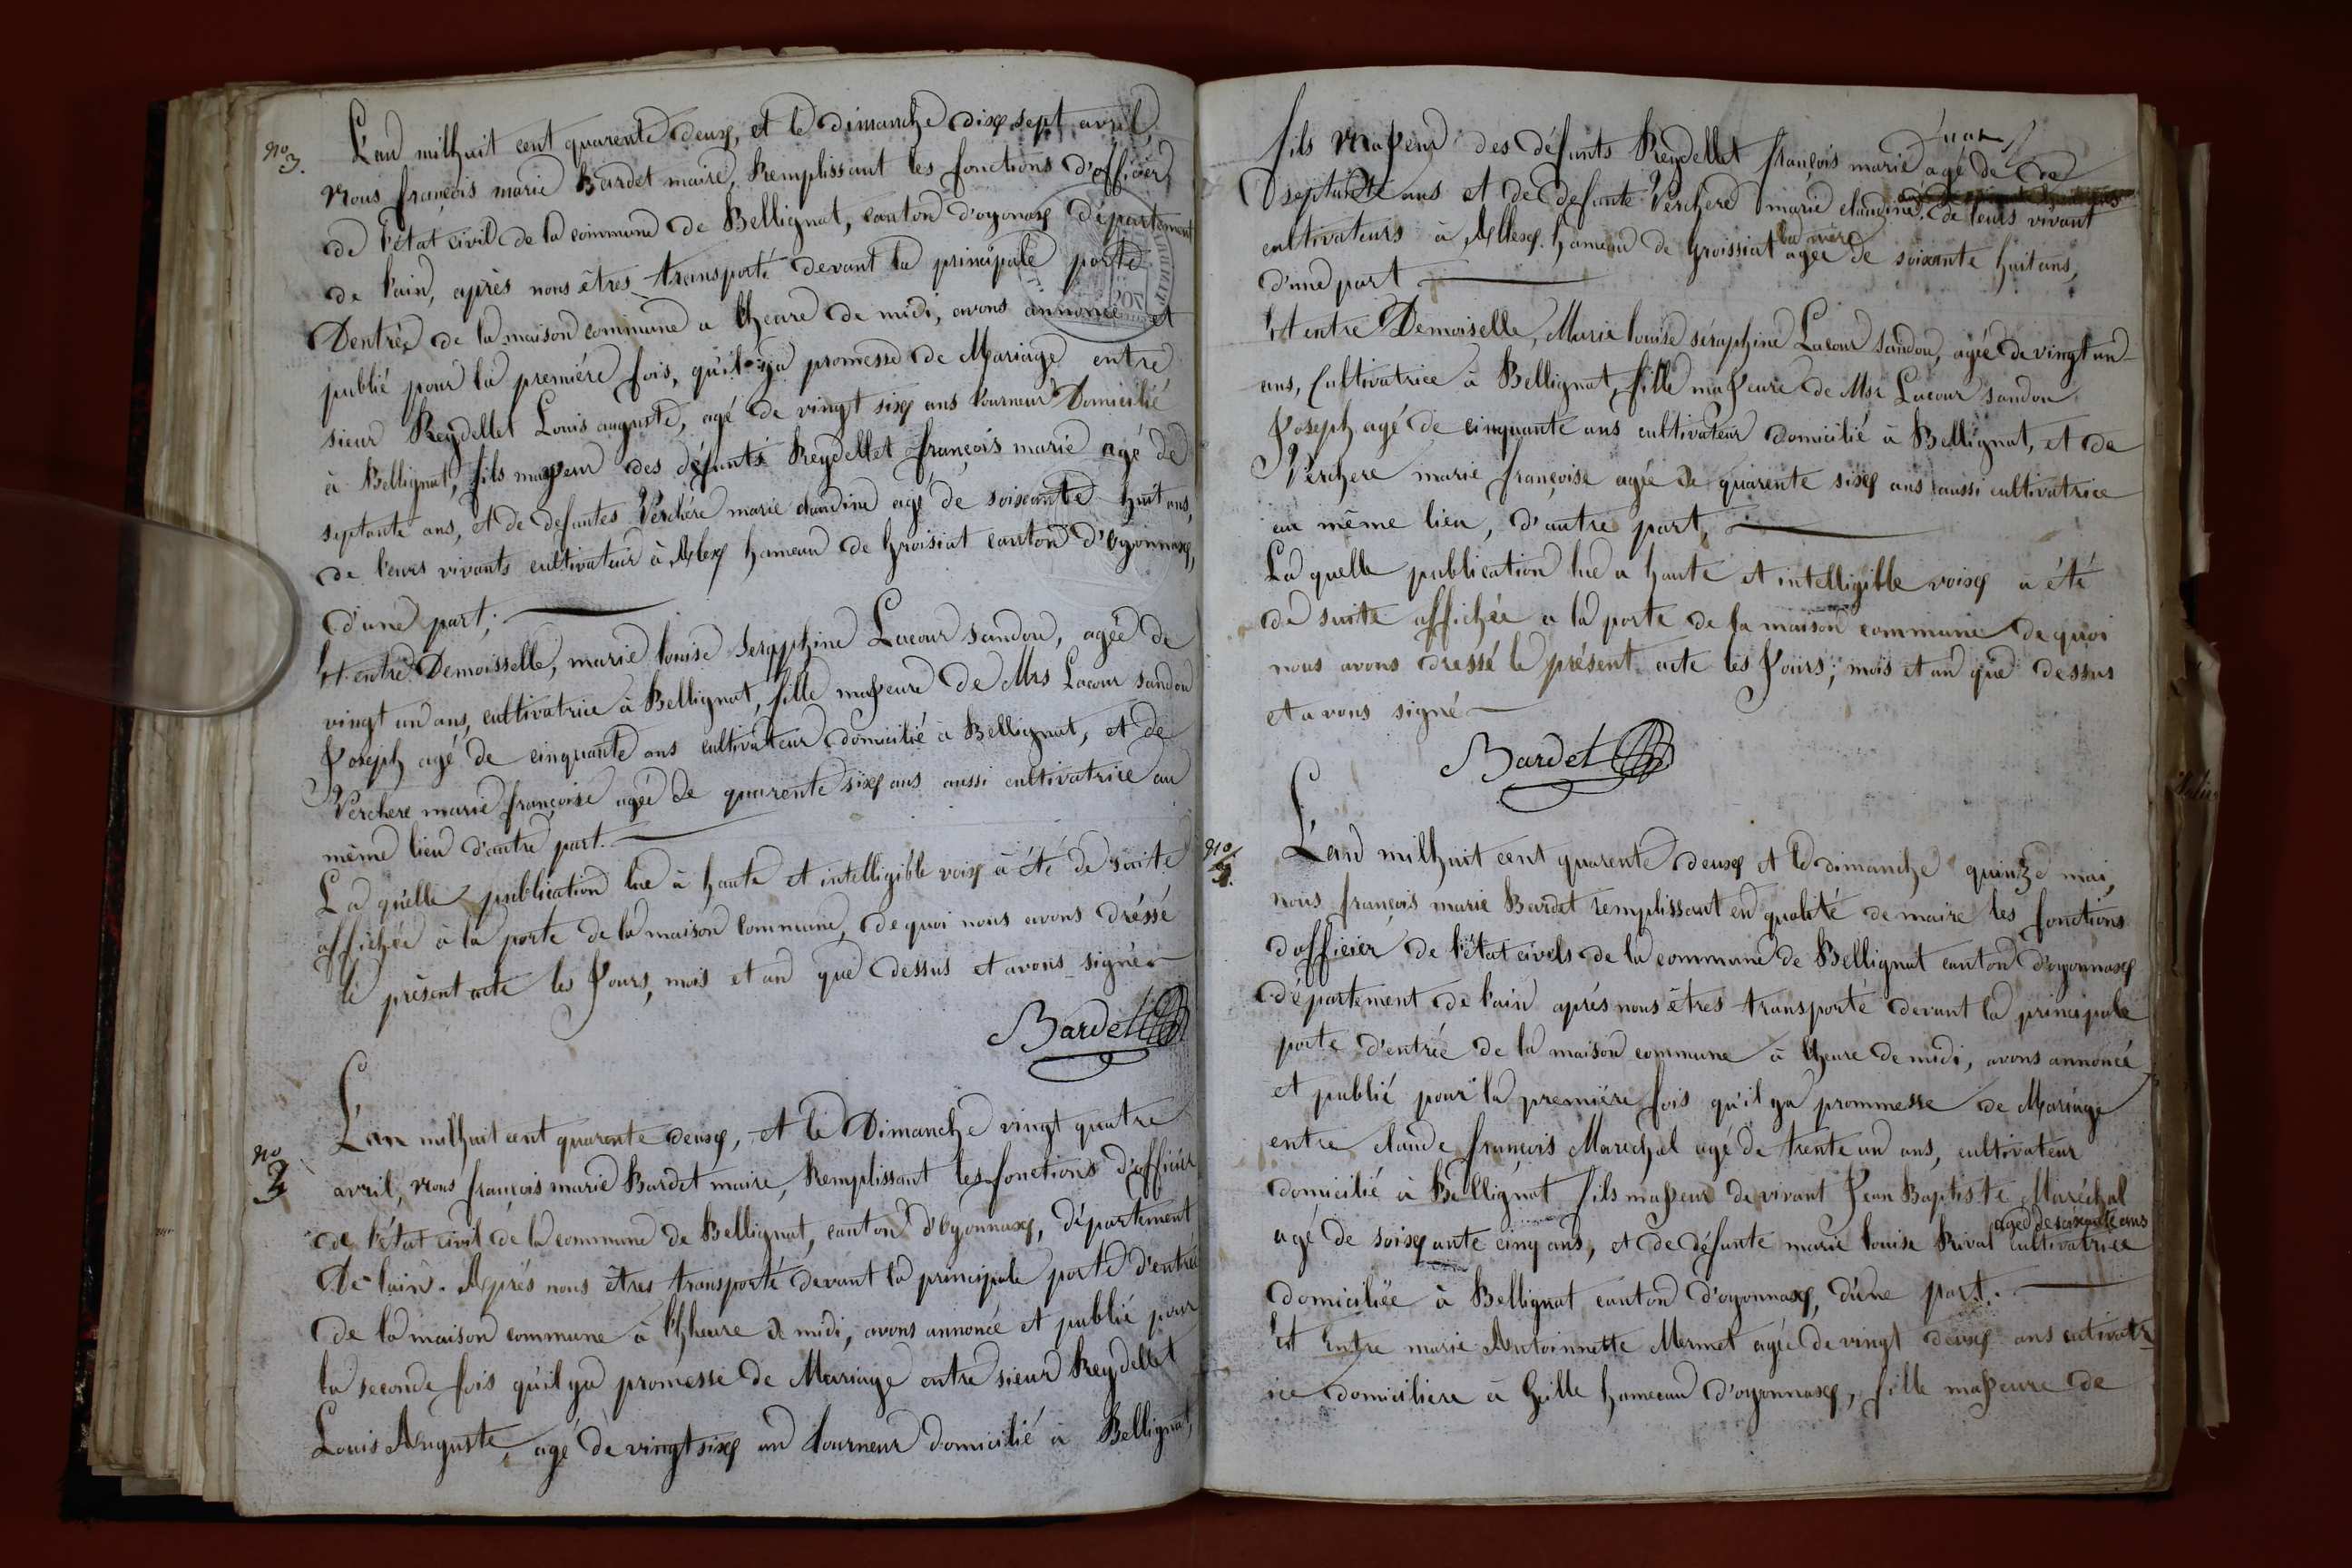 no
3.
L'an milhuit cent quarente deux, et le dimanche dix sept avril,
nous françois marie Bardet maire, Remplissant les fonctions d'officier
de l'état civil de la commune de Bellignat, canton d'oyonax département
de l'ain, après nous êtres transporté devant la principale porte
D'entrée de la maison commune a l'heure de midi, avons annoncé et
publié pour la première fois, qu'il ya promesse de Mariage entre
sieur Reydellet Louis auguste, agé de vingt six ans tourneur Domicilié
à Bellignat, fils majeur des défunts Reydellet françois marie agé de
septante ans, et de defuntes Verchère marie claudine agé de soixante huit ans,
de leurs vivants cultivateur à Alex hameau de Groisiat canton d'Oyonnax,
d'une part;
Et entre Demoisselle, marie louise Seraphine Lacour Sandon, agée de
vingt un ans, cultivatrice à Bellignat, fille majeure de Mrs Lacour Sandon
Joseph agé de cinquante ans cultivateur domicilié à Bellignat, et de
Verchere marie françoise agée de quarente six ans aussi cultivatrice au
même lieu d'autre part.
La quelle publication lue à haute et intelligible voix à été de suite
affichée à la porte de la maison commune, de quoi nous avons dréssé
le présent acte les Jours, mois et an que dessus et avons signé
Bardet
no
L'an milhuit cent quarente deux, et le Dimanche vingt quatre
avril, nous françois marie Bardet maire, Remplissant les fonctions d'officier
de l'état civil de la commune de Bellignat, canton d'Oyonnax, département
De l'ain. Après nous êtres transporté devant la principale porte d'entrée
de la maison commune à l'hheure de midi, avons annoncé et publié pour
la seconde fois qu'il ya promesse de Mariage entre sieur Reydellet
Louis Auguste, agé de vingt six an tourneur domicilié à Bellignat,
fils majeur des défunts Reydellet françois marie agé de de
septante ans et de defunte Verchere marie claudine, de leurs vivant
cultivateurs à Allex hameau de Groissiat la mère agée de soixante huit ans,
d'une part
Et entre Demoiselle, Marie louise séraphine Lacour Sandon, agée de vingt un
ans, Cultivatrice à Bellignat, fille majeure de Msr Lacour Sandon
Joseph agé de cinquante ans cultivateur domicilié à Bellignat, et de
Verchere marie françoise agée de quarente six ans aussi cultivatrice
au même lieu, d'autre part,
La quelle publication lue a haute et intelligible voix à été
de suite affichée a la porte de la maison commune de quoi
nous avons dressé le présent acte les Jours, mois et an que dessus
et avons signé
Bardet
no
L'an milhuit cent quarente deux et le dimanche quinze mai,
nous françois marie Bardet remplissant en qualité de maire les fonctions
d'officier de l'état civils de la commune de Bellignat canton d'oyonnax
département de l'ain après nous êtres transporté devant la principale
porte d'entrée de la maison commune à l'heure de midi, avons annoncé
et publié pour la première fois qu'il ya prommesse de Mariage
entre claude françois Marechal agé de trente un ans, cultivateur
domicilié à Bellignat fils majeur de vivant Jean Baptiste Maréchal
agé de soixante cinq ans, et de défunte marie louise Rival agée de soixante ans cultivatrice
domiciliée à Bellignat canton d'oyonnax, d'une part.
Et Entre marie Antoinnette Mermet agée de vingt deux ans cutivatr
ice domiciliere à Geille hameau d'oyonnax, fille majeure de